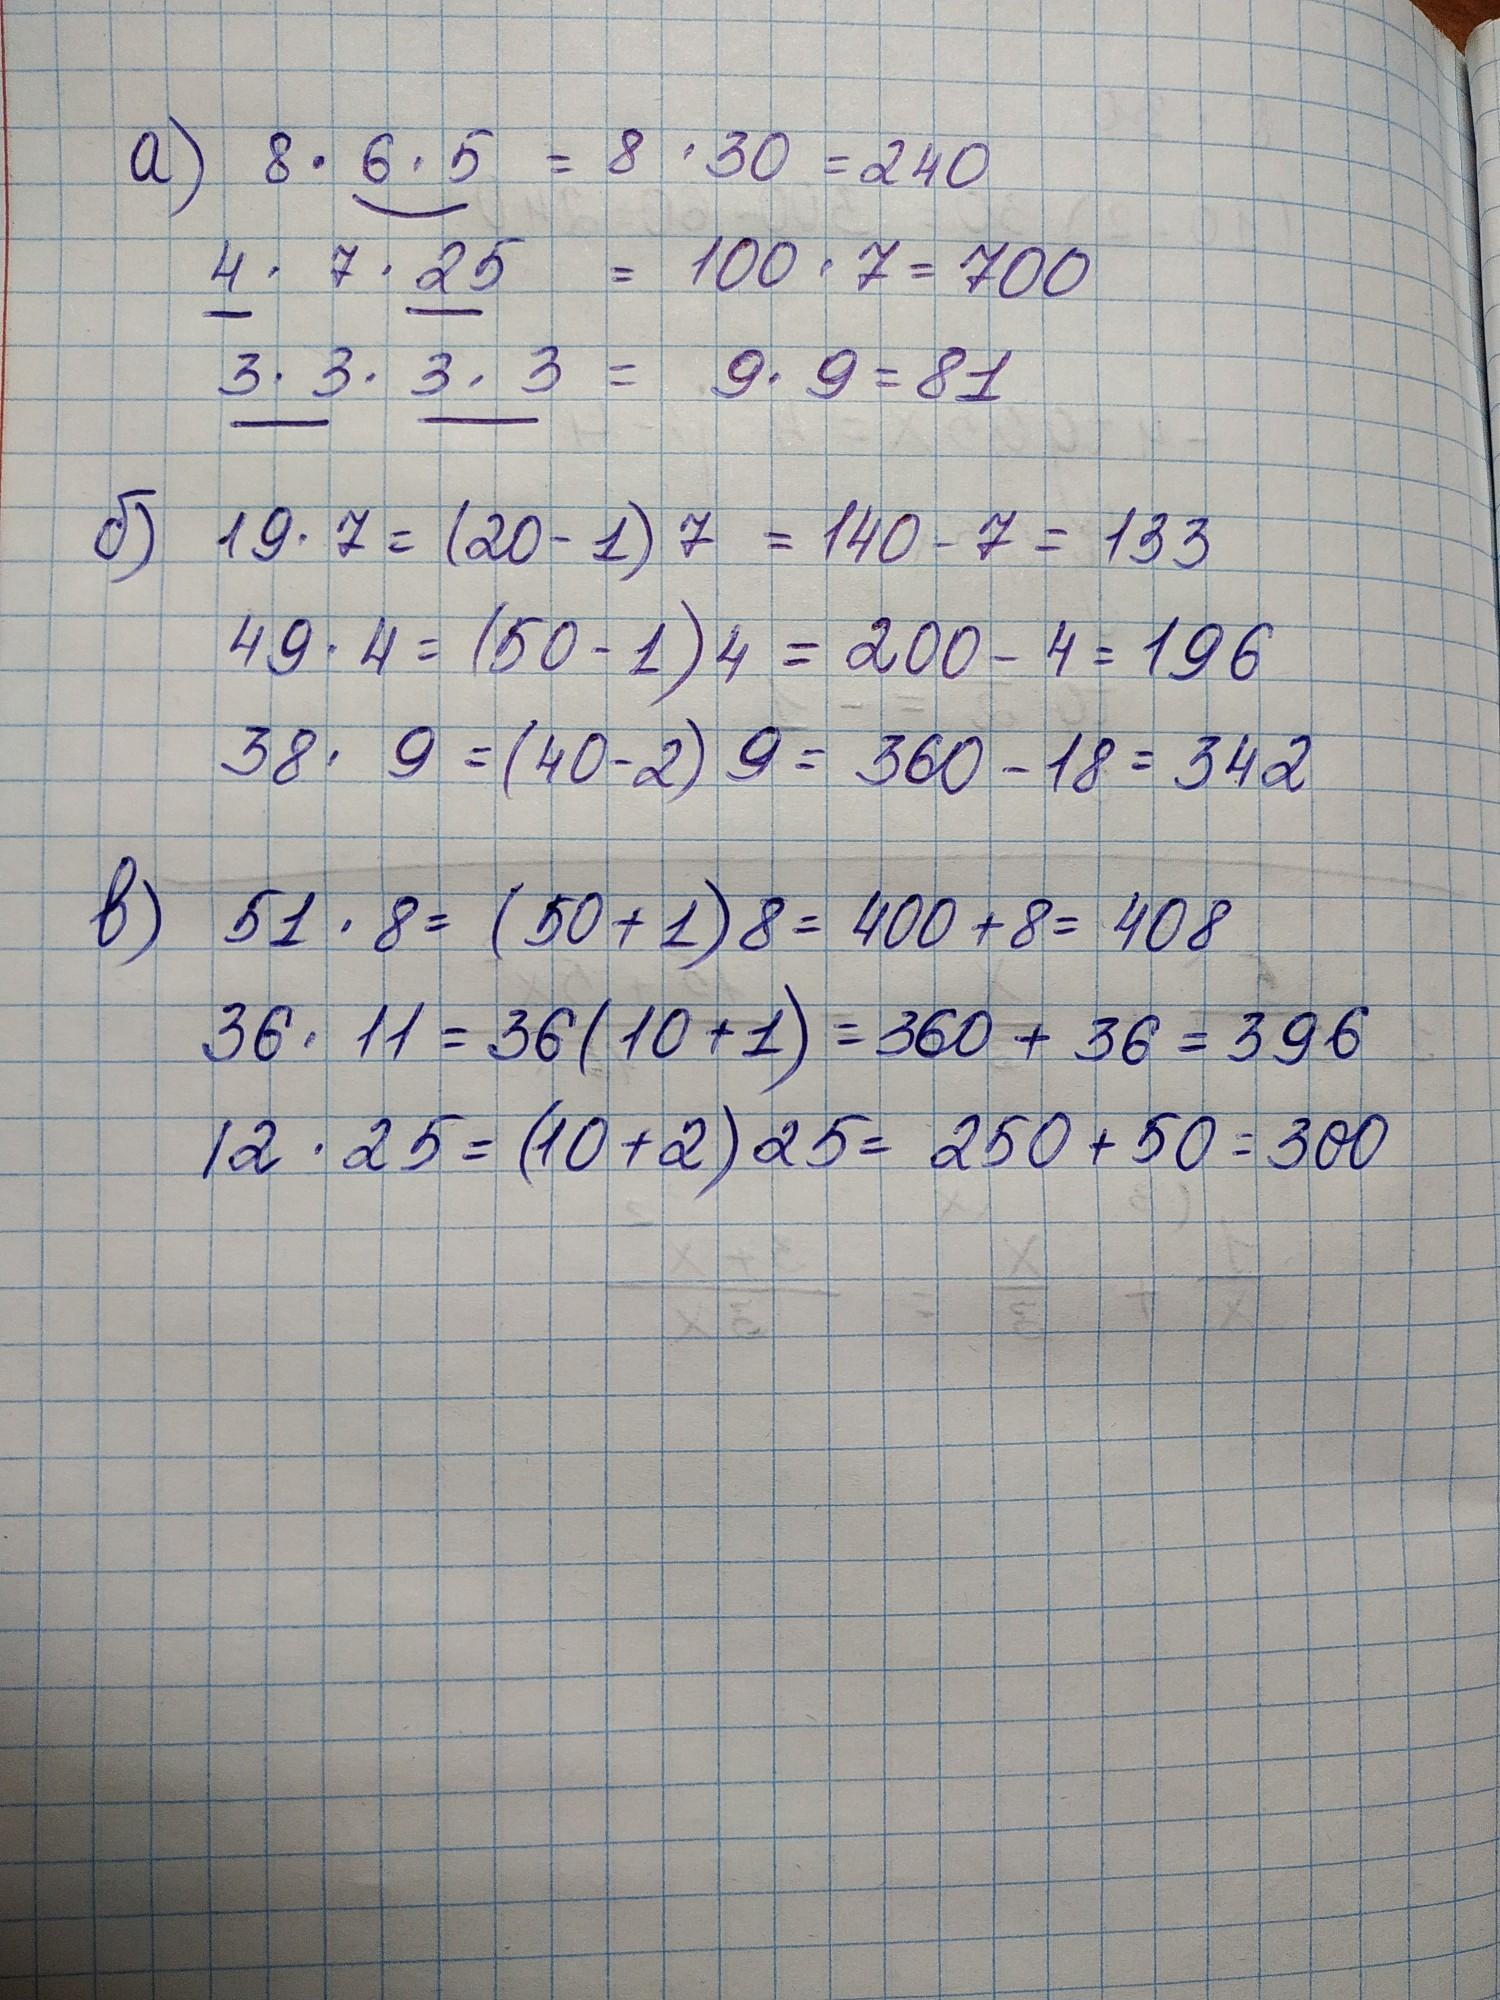 а) 8 · 6 · 5 = 8 · 30 = 240
4 · 7 · 25 = 100 · 7 = 700
3 · 3 · 3 · 3 = 9 · 9 = 81
б) 19 · 7 = (20 - 1) 7 = 140 - 7 = 133
49 · 4 = (50 - 1) 4 = 200 - 4 = 196
38 · 9 = (40 - 2) 9 = 360 - 18 = 342
в) 51 · 8 = (50 + 1) 8 = 400 + 8 = 408
36 · 11 = 36 (10 + 1) = 360 + 36 = 396
12 · 25 = (10 + 2) 25 = 250 + 50 = 300